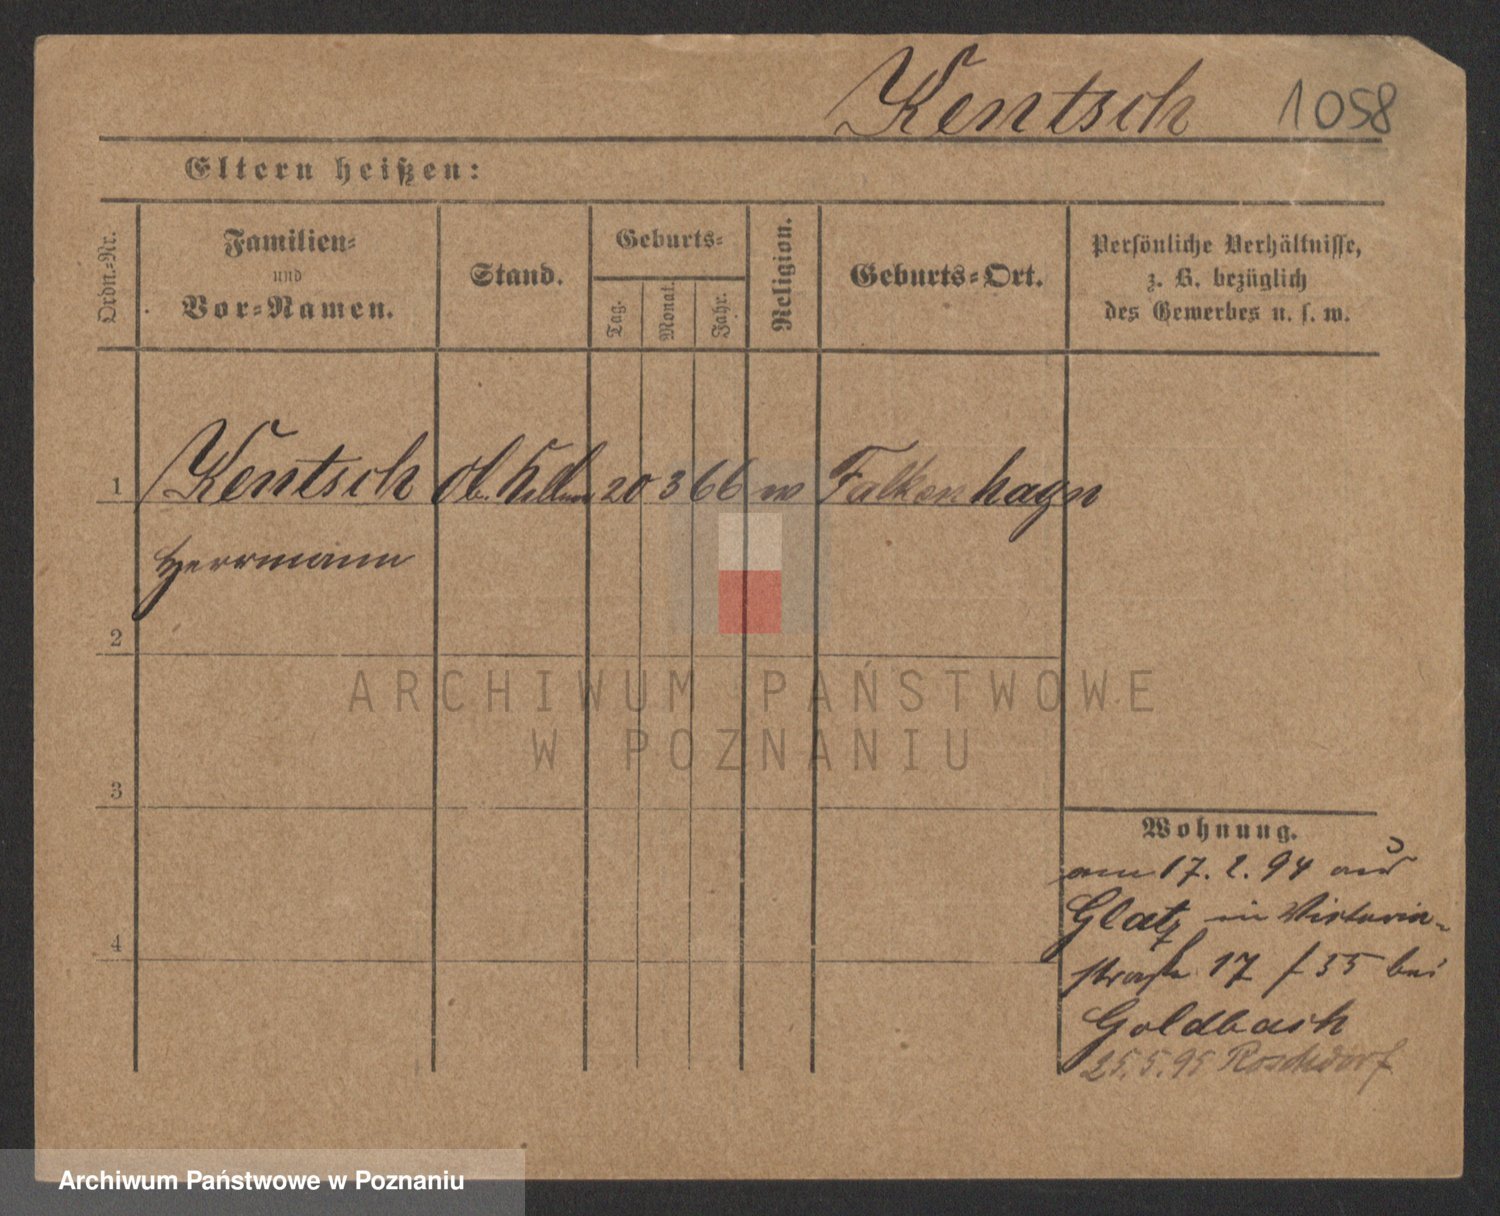 Kentsch 1058
Eltern heißen:
Ordn.-Nr.
Familien-
und
Vor-Namen.
Stand.
Geburts-
Tag.
Monat.
Jahr.
Religion.
Geburts-Ort.
Persönliche Verhältnisse,
z. B. bezüglich
des Gewerbes u. s. w.
1 Kentsch Ob. 20 3 66 Falkenhayn
Herrmann
2
3
4
ARCHIWUM PAŃSTWOWE
W POZNANIU
Wohnung.
am 17. 2. 94 aus
Glatz in Victoria-
straße 17 bei
Goldbach
25.5.95 Roschdorf
Archiwum Państwowe w Poznaniu